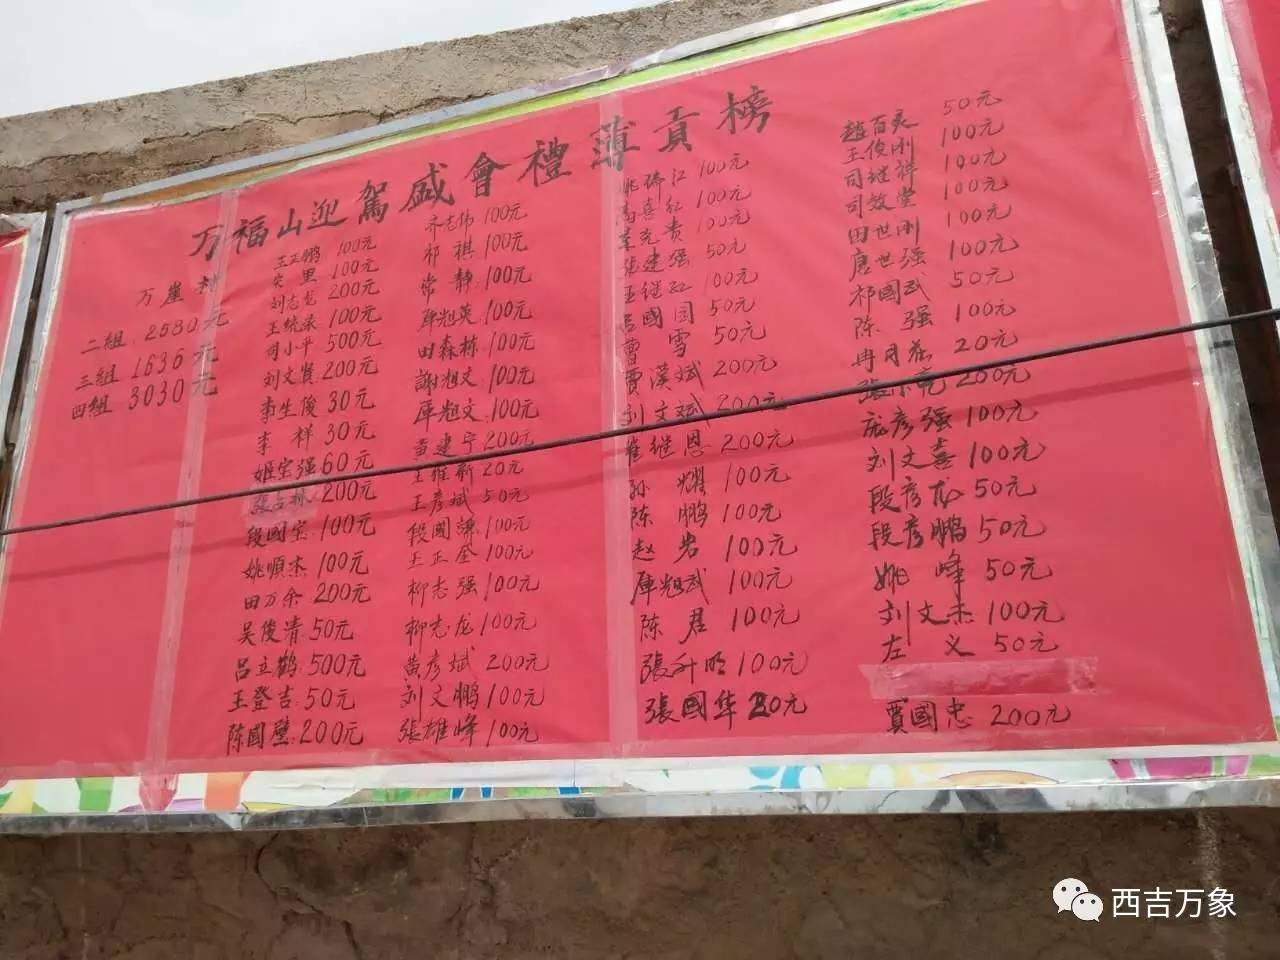 万福山迎駕盛會禮薄貢榜
万崖村
二組 2580元
三組 1636元
四組 3030元
王正鹏 100元
奕里 100元
刘志龙 200元
王统录 100元
司小平 500元
刘文贤 200元
李生俊 30元
李祥 30元
姬宝强 60元
張吉林 200元
段國宝 100元
姚順杰 100元
田万余 200元
吴俊清 50元
吕立鹤 500元
王登吉 50元
陈國璧 200元
齐志伟 100元
祁祺 100元
常静 100元
庫旭英 100元
田森林 100元
謝旭文 100元
庫旭文 100元
黄建宁 200元
王維新 20元
王彦斌 50元
段國謙 100元
王正奎 100元
柳志强 100元
柳志龙 100元
黄彦斌 200元
刘文鹏 100元
張雄峰 100元
江 100元
高喜红 100元
克贵 100元
張建强 50元
王继红 100元
吕國园 50元
曹雪 50元
賈漢斌 200元
刘文斌 200元
崔继恩 200元
孙耀 100元
陈鹏 100元
赵岩 100元
庫旭武 100元
陈君 100元
張升明 100元
張國华 20元
趙百灵 50元
王俊刚 100元
司继祥 100元
司效堂 100元
田世刚 100元
唐世强 100元
祁國武 50元
陈强 100元
冉同 20元
張小亮 200元
庞彦强 100元
刘文喜 100元
段彦龙 50元
段彦鹏 50元
姚峰 50元
刘文杰 100元
左义 50元
賈國忠 200元
西吉万象